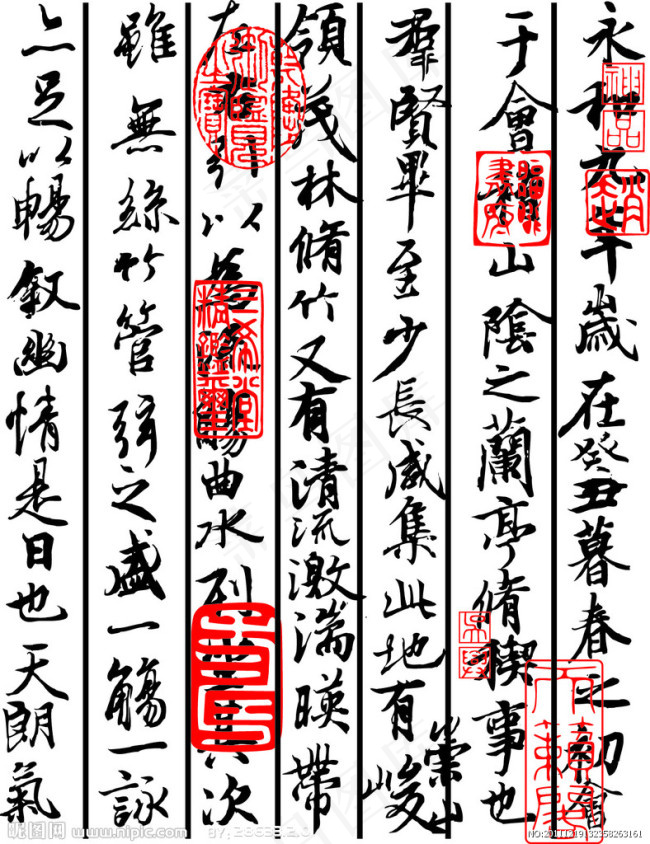 永和九年歲在癸丑暮春之初會
于會稽山陰之蘭亭脩稧事也
羣賢畢至少長咸集此地有崇山峻
領茂林脩竹又有清流激湍暎帶
左右引以為流觴曲水列坐其次
雖無絲竹管弦之盛一觴一詠
亦足以暢叙幽情是日也天朗氣
神品
三希堂精鑑璽
宜子孫
昵图网 www.nipic.com